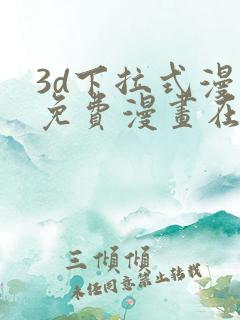 3d下拉式漫
免費漫畫在
三傾傾
未任同意禁止转载